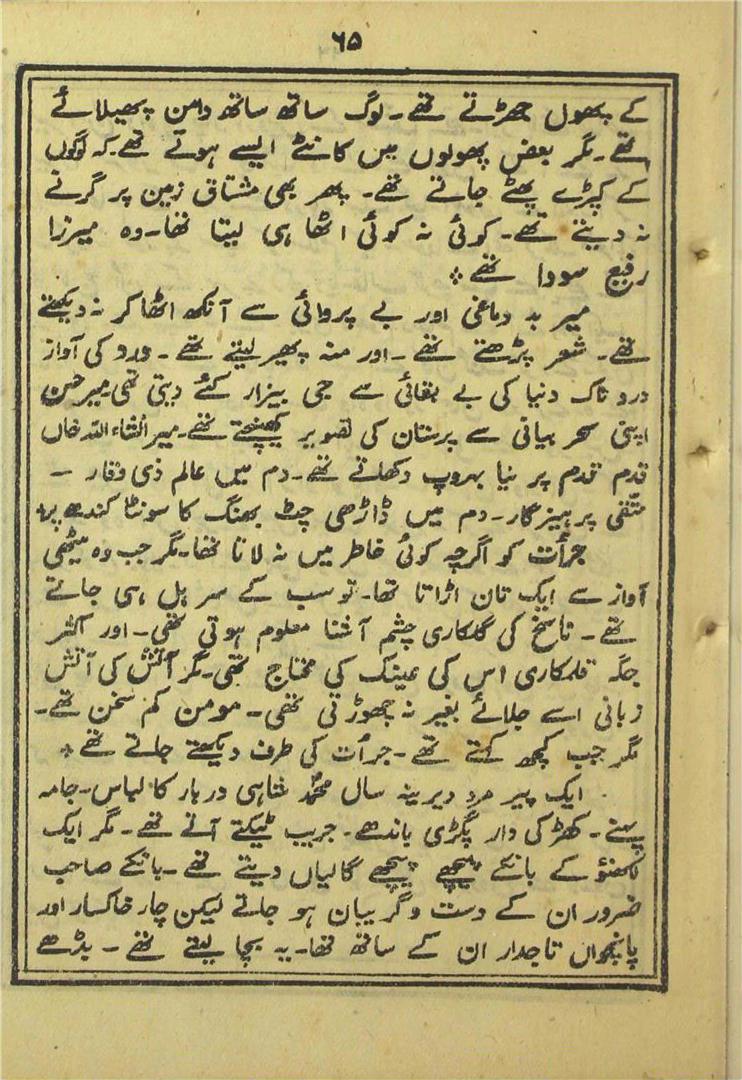 ۶۵
کے پھول جھڑتے تھے۔ لوگ ساتھ ساتھ دامن پھیلائے
تھے۔ مگر بعض پھولوں میں کانٹے ایسے ہوتے تھے۔ کہ لوگوں
کے کپڑے پھٹے جاتے تھے۔ پھر بھی مشتاق زمین پر گرنے
نہ دیتے تھے۔ کوئی نہ کوئی اٹھا ہی لیتا تھا۔ وہ میرزا
رفیع سودا تھے ٭
میر بد دماغی اور بے پروائی سے آنکھ اٹھا کر نہ دیکھتے
تھے۔ شعر پڑھتے تھے۔ اور منہ پھیر لیتے تھے۔ درد کی آواز
دردناک دنیا کی بے بقائی سے جی بیزار کئے دیتی تھی۔ میر حسن
اپنی سحر بیانی سے پرستان کی تصویر کھینچتے تھے۔ میر انشاء اللہ خاں
قدم قدم پر نیا بہروپ دکھلاتے تھے۔ دم میں عالم ذی وقار ۔
متقی پرہیزگار۔ دم میں ڈاڑھی چٹ بھنگ کا سونٹا کندھے پر٭
جرأت کو اگرچہ کوئی خاطر میں نہ لاتا تھا۔ مگر جب وہ میٹھی
آواز سے ایک تان اڑاتا تھا۔ تو سب کے سر ہل ہی جاتے
تھے۔ ناسخ کی گلکاری چشم آشنا معلوم ہوتی تھی۔ اور اکثر
جگہ قلمکاری اس کی عینک کی محتاج تھی۔ مگر آتش کی آتش
زبانی اسے جلائے بغیر نہ چھوڑتی تھی۔ مومن کم سخن تھے۔
مگر جب کچھ کہتے تھے۔ جرأت کی طرف دیکھتے جاتے تھے ٭
ایک پیر مرد دیرینہ سال محمد شاہی دربار کا لباس۔ جامہ
پہنے۔ کھڑکی دار پگڑی باندھے۔ جریب ٹیکتے آتے تھے۔ مگر ایک
لکھنؤ کے بانکے پیچھے پیچھے گالیاں دیتے تھے۔ بانکے صاحب
ضرور ان کے دست و گریبان ہو جاتے لیکن چار خاکسار اور
پانچواں تاجدار ان کے ساتھ تھا۔ یہ بچا لیتے تھے۔ بڈھے